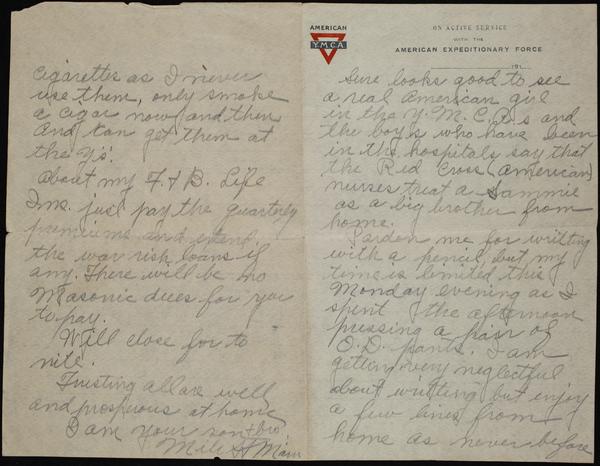 AMERICAN
Y.M.C.A.
ON ACTIVE SERVICE
WITH THE
AMERICAN EXPEDITIONARY FORCE
191
Sure looks good to see
a real American girl
in the Y.M.C.A.'s and
the boys who have been
in the hospitals say that
the Red Cross (American)
nurses treat a Sammie
as a big brother from
home.
Pardon me for writting
with a pencil, but my
time is limited this
Monday evening as I
spent the afternoon
pressing a pair of
O.D. pants. I am
getting very neglectful
about writting but enjoy
a few lines from
home as never before
cigarettes as I never
use them, only smoke
a cigar now and then
and can get them at
the Ys.
About my F. & B. Life
Ins. just pay the quarterly
premiums and
the war risk loans if
any. There will be no
Masonic dues for you
to pay.
Will close for to
nite.
Trusting all are well
and prosperous at home
I am your son & bro